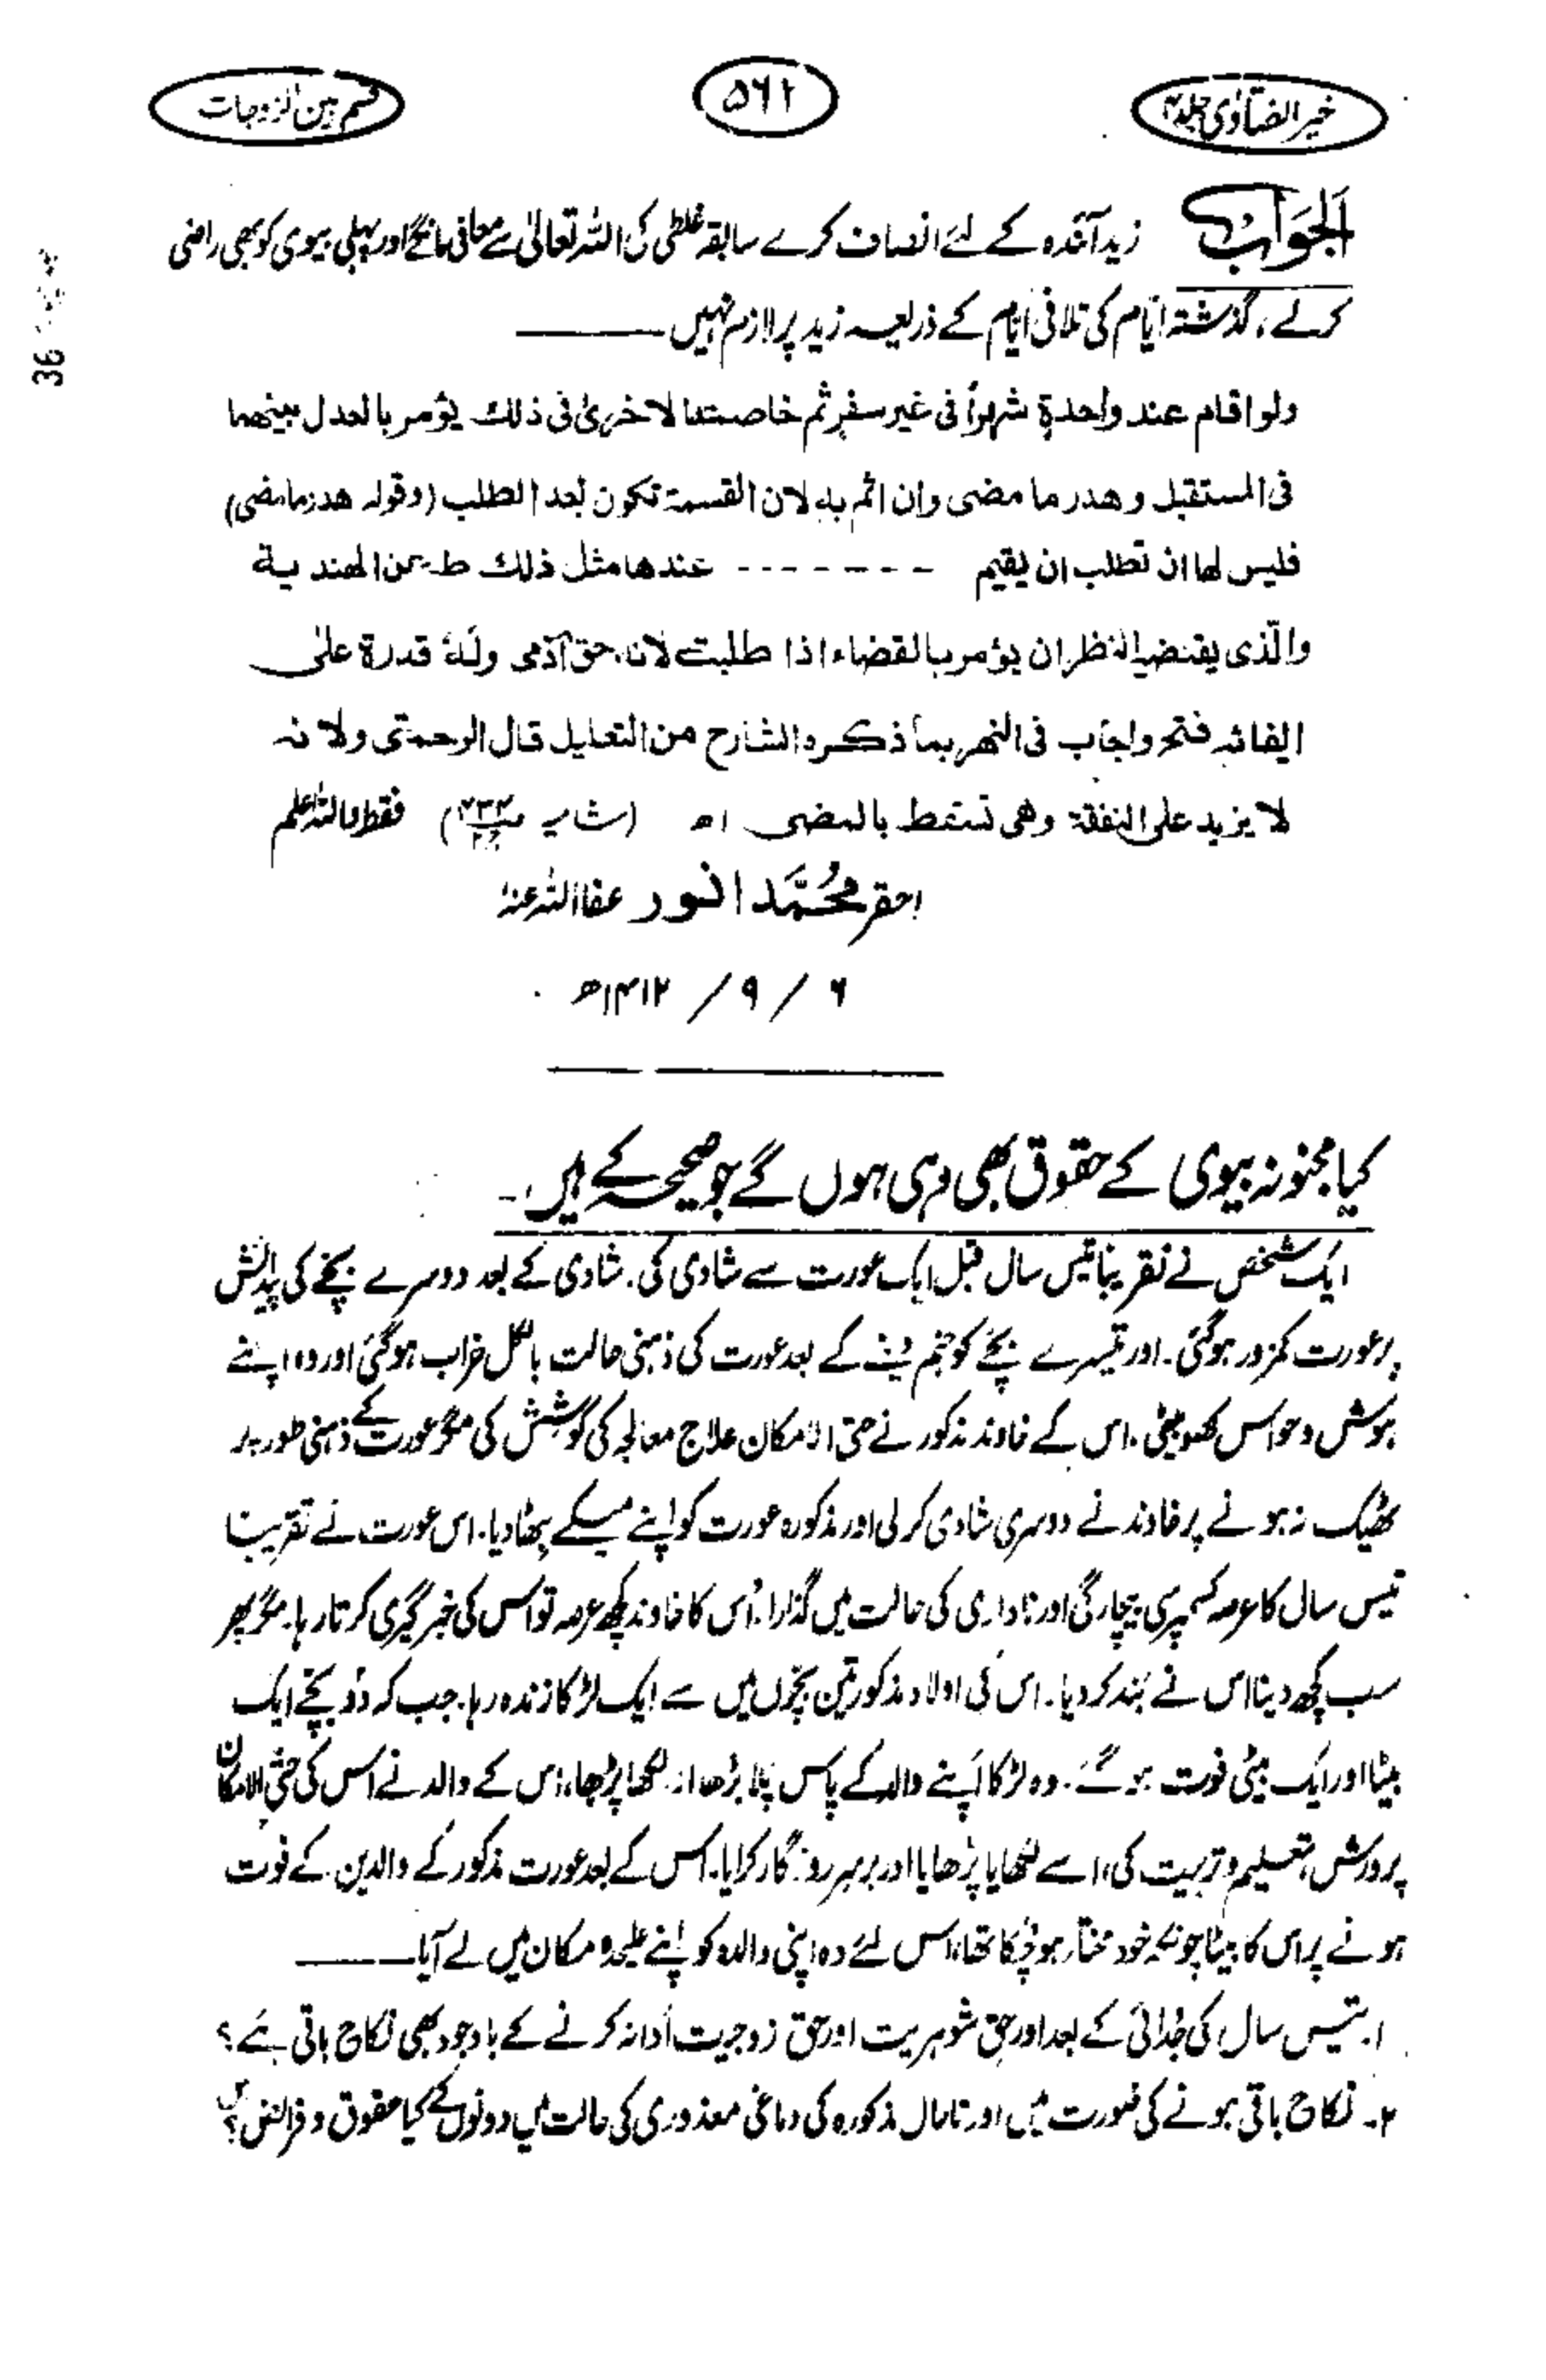 خیر الفتاویٰ جلد ۴
۵۶۲
قسم بین الزوجات
اَلجَوَابُ زید آئندہ کے لئے انصاف کرے سابقہ غلطی کی اللہ تعالیٰ سے معافی مانگے اور پہلی بیوی کو بھی راضی
کرلے، گذشتہ ایّام کی تلافی ایّام کے ذریعہ زید پر لازم نہیں ـــــ
ولو اقام عند واحدةٍ شهراً فی غیر سفرٍ ثم خاصمتها الاخریٰ فی ذلك یؤمر بالعدل بینهما
فی المستقبل وهدر ما مضی وان اثم به لان القسمة تکون بعد الطلب (وقوله هدر ما مضی)
فلیس لها ان تطلب ان یقیم - - - - - - - عندها مثل ذلك ط۔ عن الهندیة
والّذی یقتضیه النظر ان یؤمر بالقضاء اذا طلبت لانه حق آدمی ولهٗ قدرة علیٰ
ایفائه فتح واجاب فی النهر بما ذکره الشارح من التعلیل قال الرحمتی ولانه
لا یزید علی النفقة وهی تسقط بالمضی اھ (شامیہ ج۲) فقط واللہ اعلم
احقر محمّد انور عفا اللہ عنہ
۶ / ۹ / ۱۴۱۲ھ
کیا مجنونہ بیوی کے حقوق بھی وہی ہوں گے جو صحیحہ کے ہیں۔
ایک شخص نے تقریباً تیس سال قبل ایک عورت سے شادی کی۔ شادی کے بعد دوسرے بچّے کی پیدائش
پر عورت کمزور ہوگئی۔ اور تیسرے بچّے کو جنم دینے کے بعد عورت کی ذہنی حالت بالکل خراب ہوگئی اور وہ اپنے
ہوش و حواس کھو بیٹھی۔ اس کے خاوند مذکور نے حتی الامکان علاج معالجہ کی کوشش کی مگر عورت کے ذہنی طور پر
ٹھیک نہ ہونے پر خاوند نے دوسری شادی کرلی اور مذکورہ عورت کو اپنے میکے بٹھا دیا۔ اس عورت نے تقریباً
تیس سال کا عرصہ کسمپرسی بیچارگی اور ناداری کی حالت میں گذارا۔ اُس کا خاوند کچھ عرصہ تو اس کی خبرگیری کرتا رہا۔ مگر پھر
سب کچھ دینا اس نے بند کردیا۔ اس کی اولاد مذکور تین بچّوں میں سے ایک لڑکا زندہ رہا۔ جب کہ دو بچّے ایک
بیٹا اور ایک بیٹی فوت ہوگئے۔ وہ لڑکا اپنے والد کے پاس پلا بڑھا اور لکھا پڑھا، اس کے والد نے اس کی حتی الامکان
پرورش، تعلیم و تربیت کی، اسے لکھایا پڑھایا اور برسر روزگار کرایا۔ اس کے بعد عورت مذکور کے والدین کے فوت
ہونے پر اس کا بیٹا چونکہ خود مختار ہوچکا تھا، اس لئے وہ اپنی والدہ کو اپنے علیحدہ مکان میں لے آیا ـــــ
۱۔ تیس سال کی جُدائی کے بعد اور حق شوہریت اور حق زوجیت اَدا نہ کرنے کے باوجود بھی نکاح باقی ہے؟
۲۔ نکاح باقی ہونے کی صُورت میں اور تا حال مذکورہ کی دماغی معذوری کی حالت میں دونوں کے کیا حقوق و فرائض ہیں؟